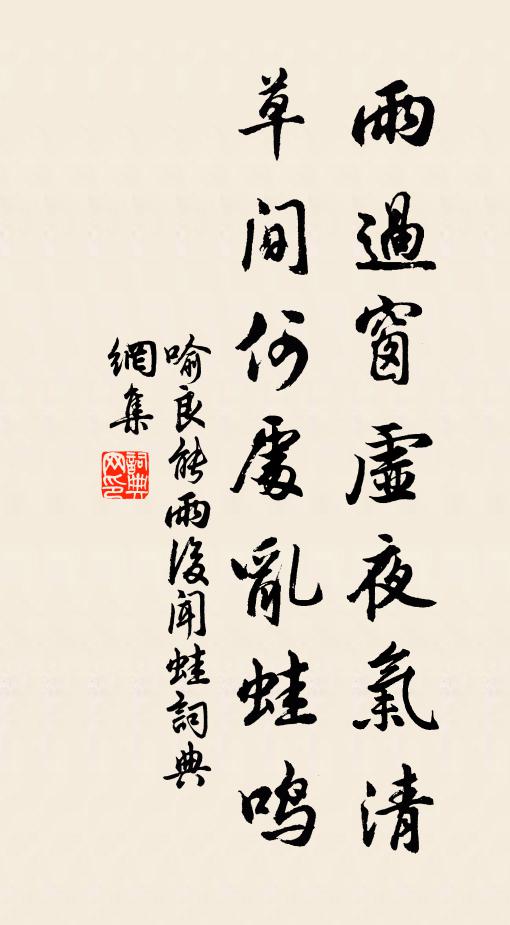 雨過窗虛夜氣清
草間何處亂蛙鳴
喻良能雨後聞蛙詞典
網集
詞典
网印